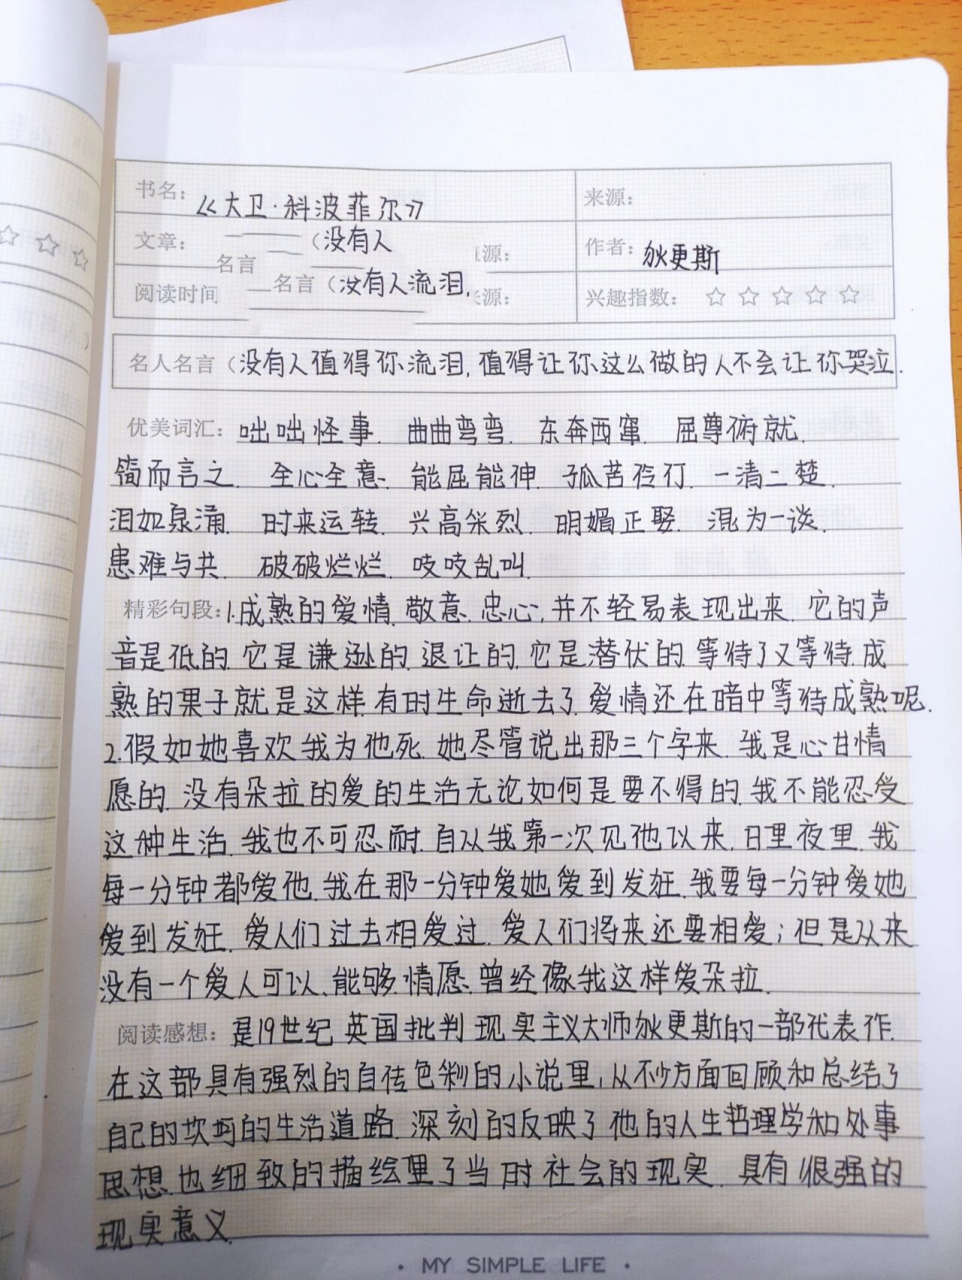 书名：《大卫·科波菲尔》 来源：
文章： （没有人 源： 作者：狄更斯
名言
阅读时间 名言（没有人流泪, 源： 兴趣指数：☆☆☆☆☆
名人名言（没有人值得你流泪,值得让你这么做的人不会让你哭泣.
优美词汇：咄咄怪事. 曲曲弯弯. 东奔西窜. 屈尊俯就.
简而言之. 全心全意. 能屈能伸. 孤苦伶仃. 一清二楚.
泪如泉涌. 时来运转. 兴高采烈. 明媚正娶. 混为一谈.
患难与共. 破破烂烂. 吱吱乱叫.
精彩句段：1.成熟的爱情,敬意、忠心,并不轻易表现出来.它的声
音是低的.它是谦逊的.退让的.它是潜伏的.等待了又等待.成
熟的果子就是这样.有时生命逝去了.爱情还在暗中等待成熟呢.
2.假如她喜欢我为他死.她尽管说出那三个字来.我是心甘情
愿的.没有朵拉的爱的生活无论如何是要不得的.我不能忍受
这种生活.我也不可忍耐.自从我第一次见他以来.日里夜里.我
每一分钟都爱他.我在那一分钟爱她爱到发狂.我要每一分钟爱她
爱到发狂.爱人们过去相爱过.爱人们将来还要相爱；但是从来
没有一个爱人可以、能够、情愿、曾经像我这样爱朵拉.
阅读感想：是19世纪英国批判现实主义大师狄更斯的一部代表作.
在这部具有强烈的自传色彩的小说里,从不少方面回顾和总结了
自己的坎坷的生活道路.深刻的反映了他的人生哲理学和处事
思想.也细致的描绘里了当时社会的现实.具有很强的
现实意义.
· MY SIMPLE LIFE ·